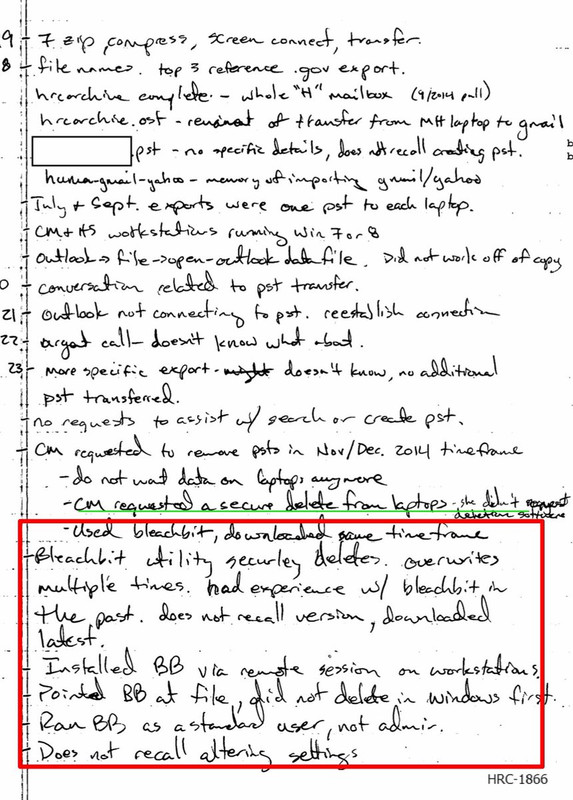 9 - 7 zip, compress, screen connect, transfer.
8 - file names. top 3 reference .gov export.
hrcarchive complete - whole "H" mailbox (9/2014 pull)
hrcarchive.ost - remnant of transfer from MH laptop to gmail
.pst - no specific details, does not recall creating pst. b
b
huma-gmail-yahoo - memory of importing gmail/yahoo
- July + Sept. exports were one pst to each laptop.
- CM + HS workstations running Win 7 or 8
- Outlook → file → open - outlook data file. Did not work off of copy
0 - conversation related to pst transfer.
21 - outlook not connecting to pst. reestablish connection
22 - urgent call - doesn't know what about.
23 - more specific export - might doesn't know, no additional
pst transferred.
- no requests to assist w/ search or create pst.
- CM requested to remove psts in Nov/Dec. 2014 timeframe
- do not want data on laptops anymore
- CM requested a secure delete from laptops - she didn't request
deletion software
- Used bleachbit, downloaded same timeframe
- Bleachbit utility securley deletes. overwrites
multiple times. had experience w/ bleachbit in
the past. does not recall version, downloaded
latest.
- Installed BB via remote session on workstations.
- Pointed BB at file, did not delete in windows first.
- Ran BB as a standard user, not admin.
- Does not recall altering settings
HRC-1866